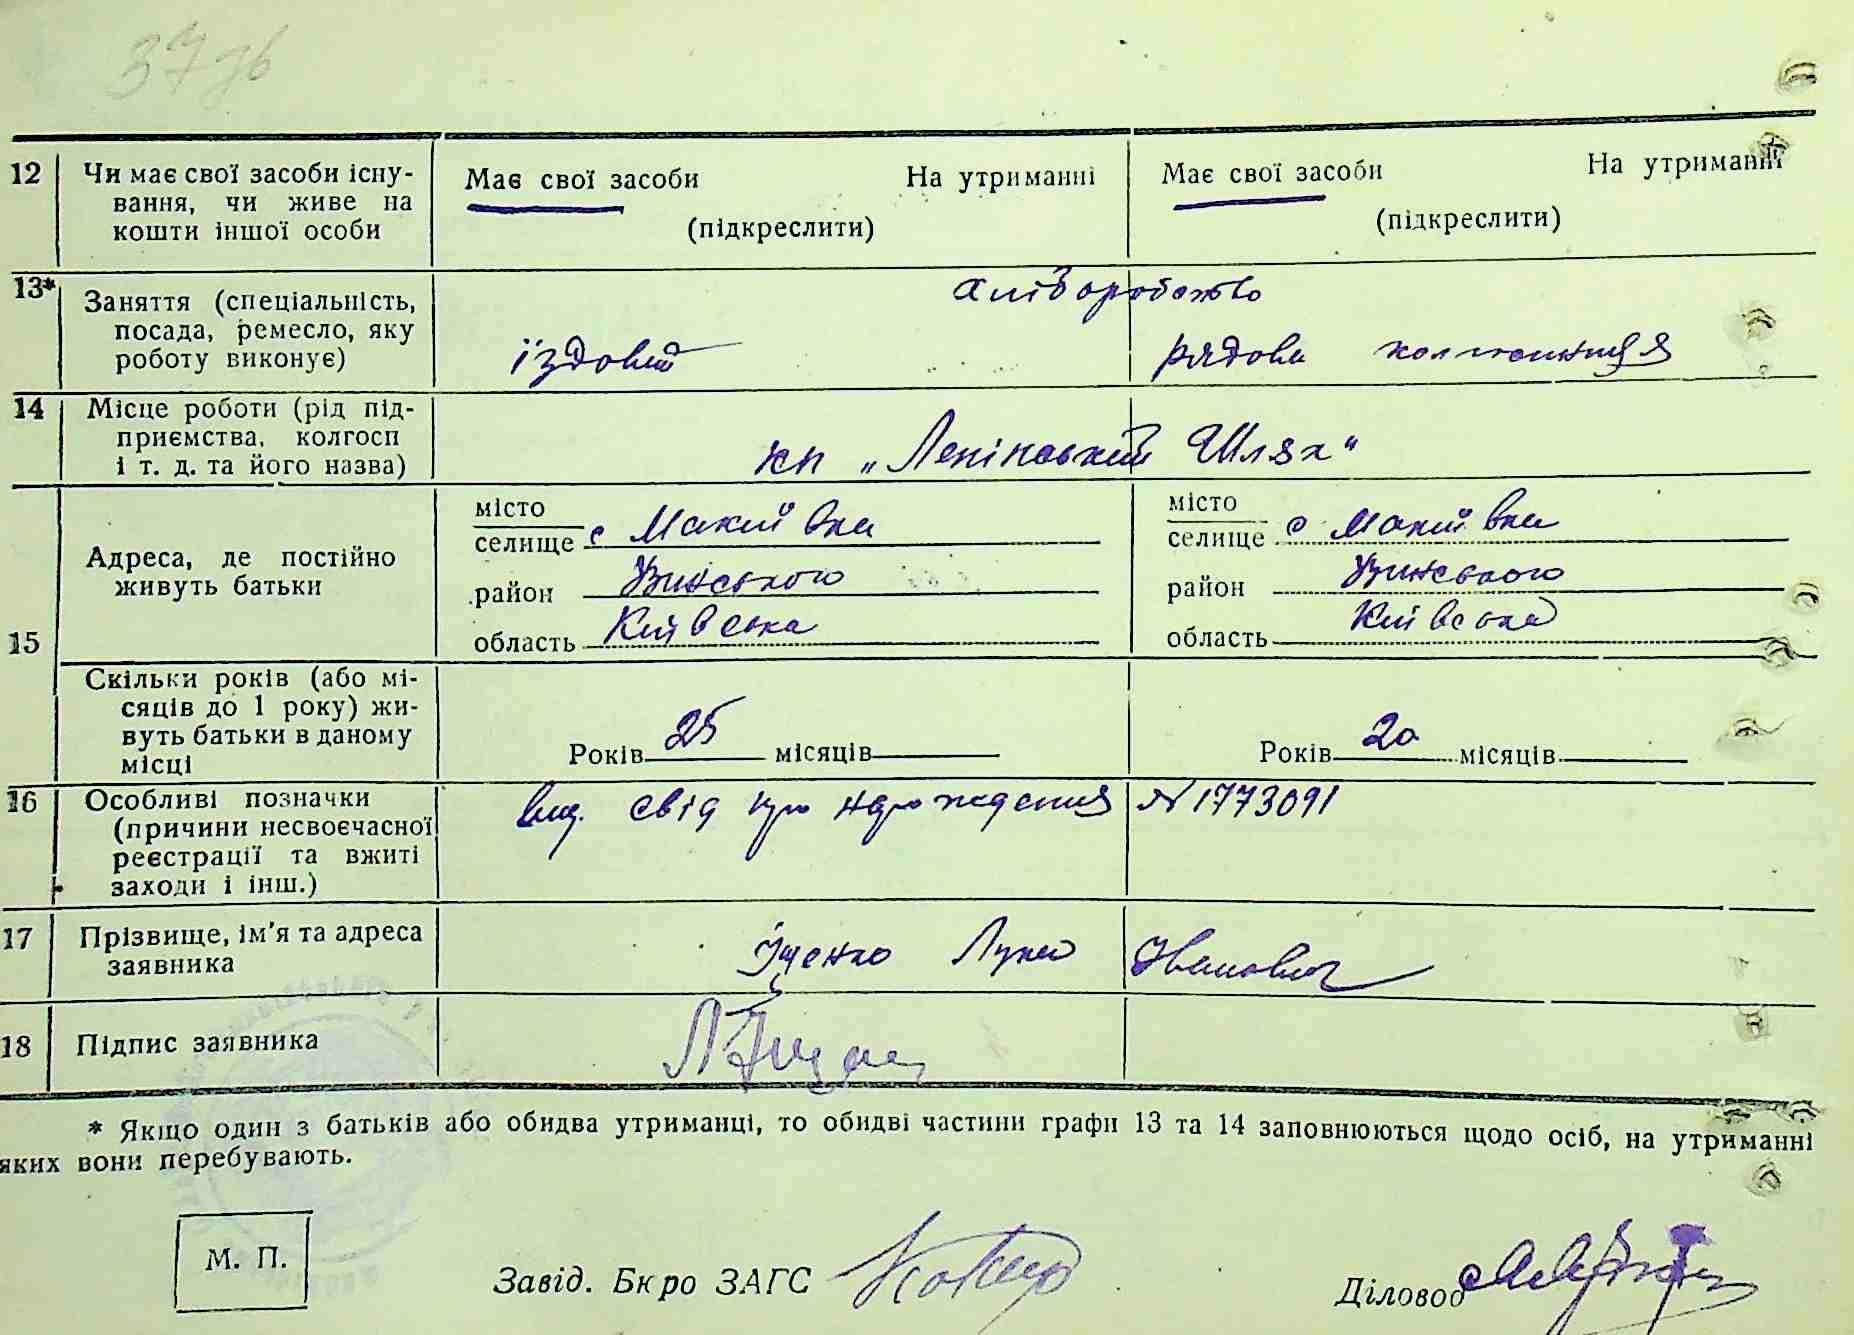 37 зв
12 Чи має свої засоби існу-
вання, чи живе на
кошти іншої особи
Має свої засоби На утриманні
(підкреслити)
Має свої засоби На утриманні
(підкреслити)
13* Заняття (спеціальність,
посада, ремесло, яку
роботу виконує)
хліборобство
їздовий
рядова колгоспниця
14 Місце роботи (рід під-
приємства, колгосп
і т. д. та його назва)
кп „Ленінський Шлях"
15 Адреса, де постійно
живуть батьки
місто
селище с Макиївка
район
область Київська
місто
селище с Макиївка
район
область Київська
Скільки років (або мі-
сяців до 1 року) жи-
вуть батьки в даному
місці
Років 25 місяців
Років 20 місяців
16 Особливі позначки
(причини несвоєчасної
реєстрації та вжиті
заходи і інш.)
вид. свід про народження № 1773091
17 Прізвище, ім'я та адреса
заявника
Іщенко Лука Іванович
18 Підпис заявника
* Якщо один з батьків або обидва утриманці, то обидві частини графи 13 та 14 заповнюються щодо осіб, на утриманні
яких вони перебувають.
М. П.
Завід. Бюро ЗАГС
Діловод